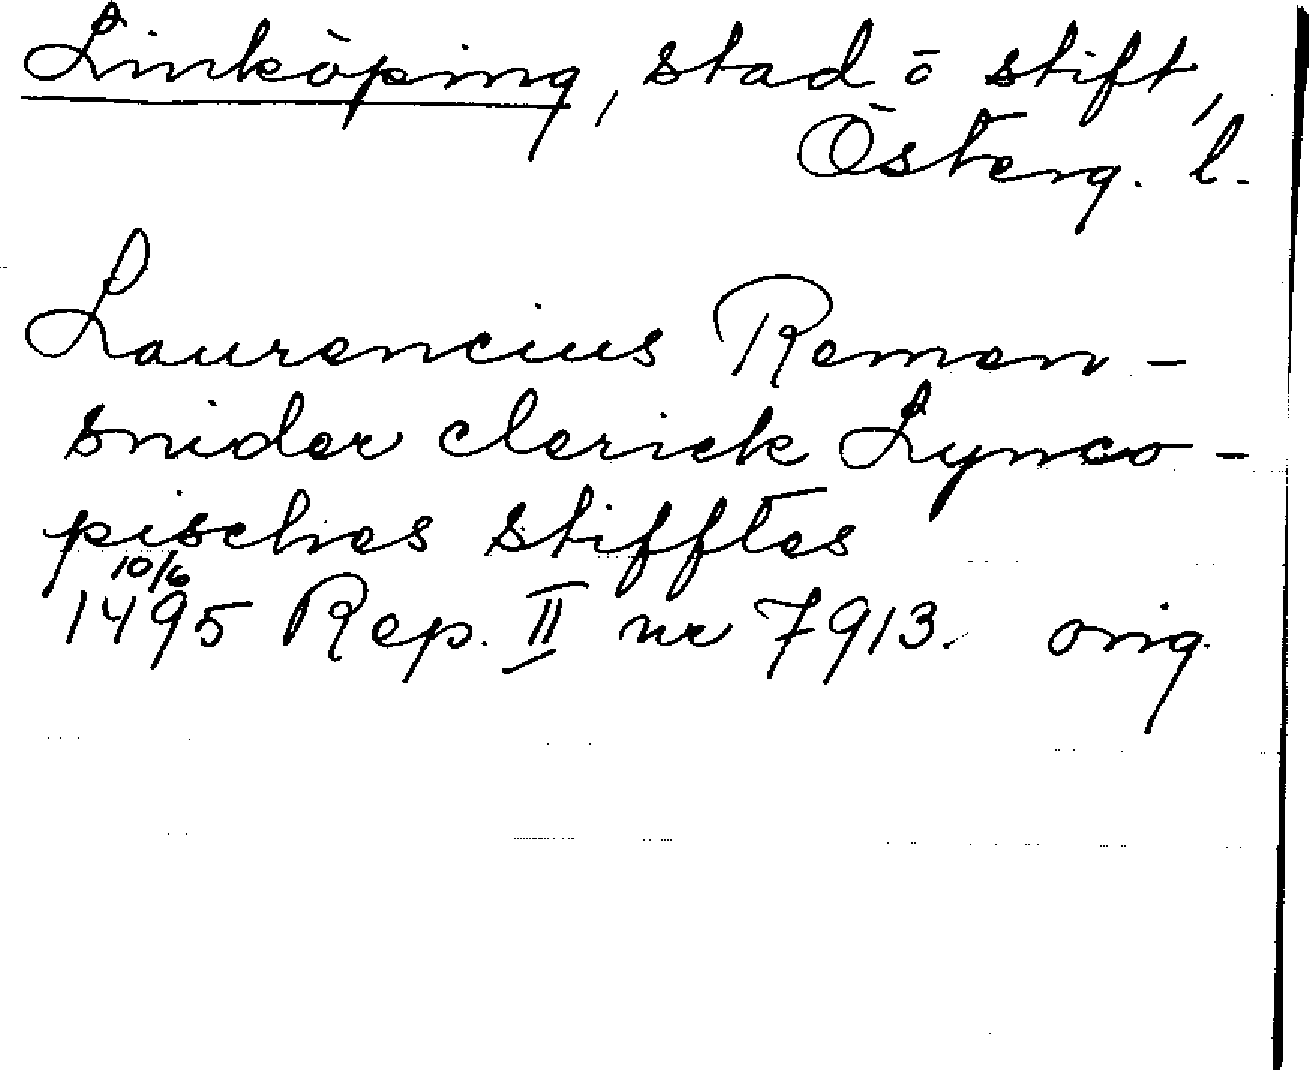 Linköping, stad ō stift,
Österg. l.
Laurencius Remen-
snider clerick Lynco-
pisches stifftes
10/6
1495 Rep. II nr 7913. orig.